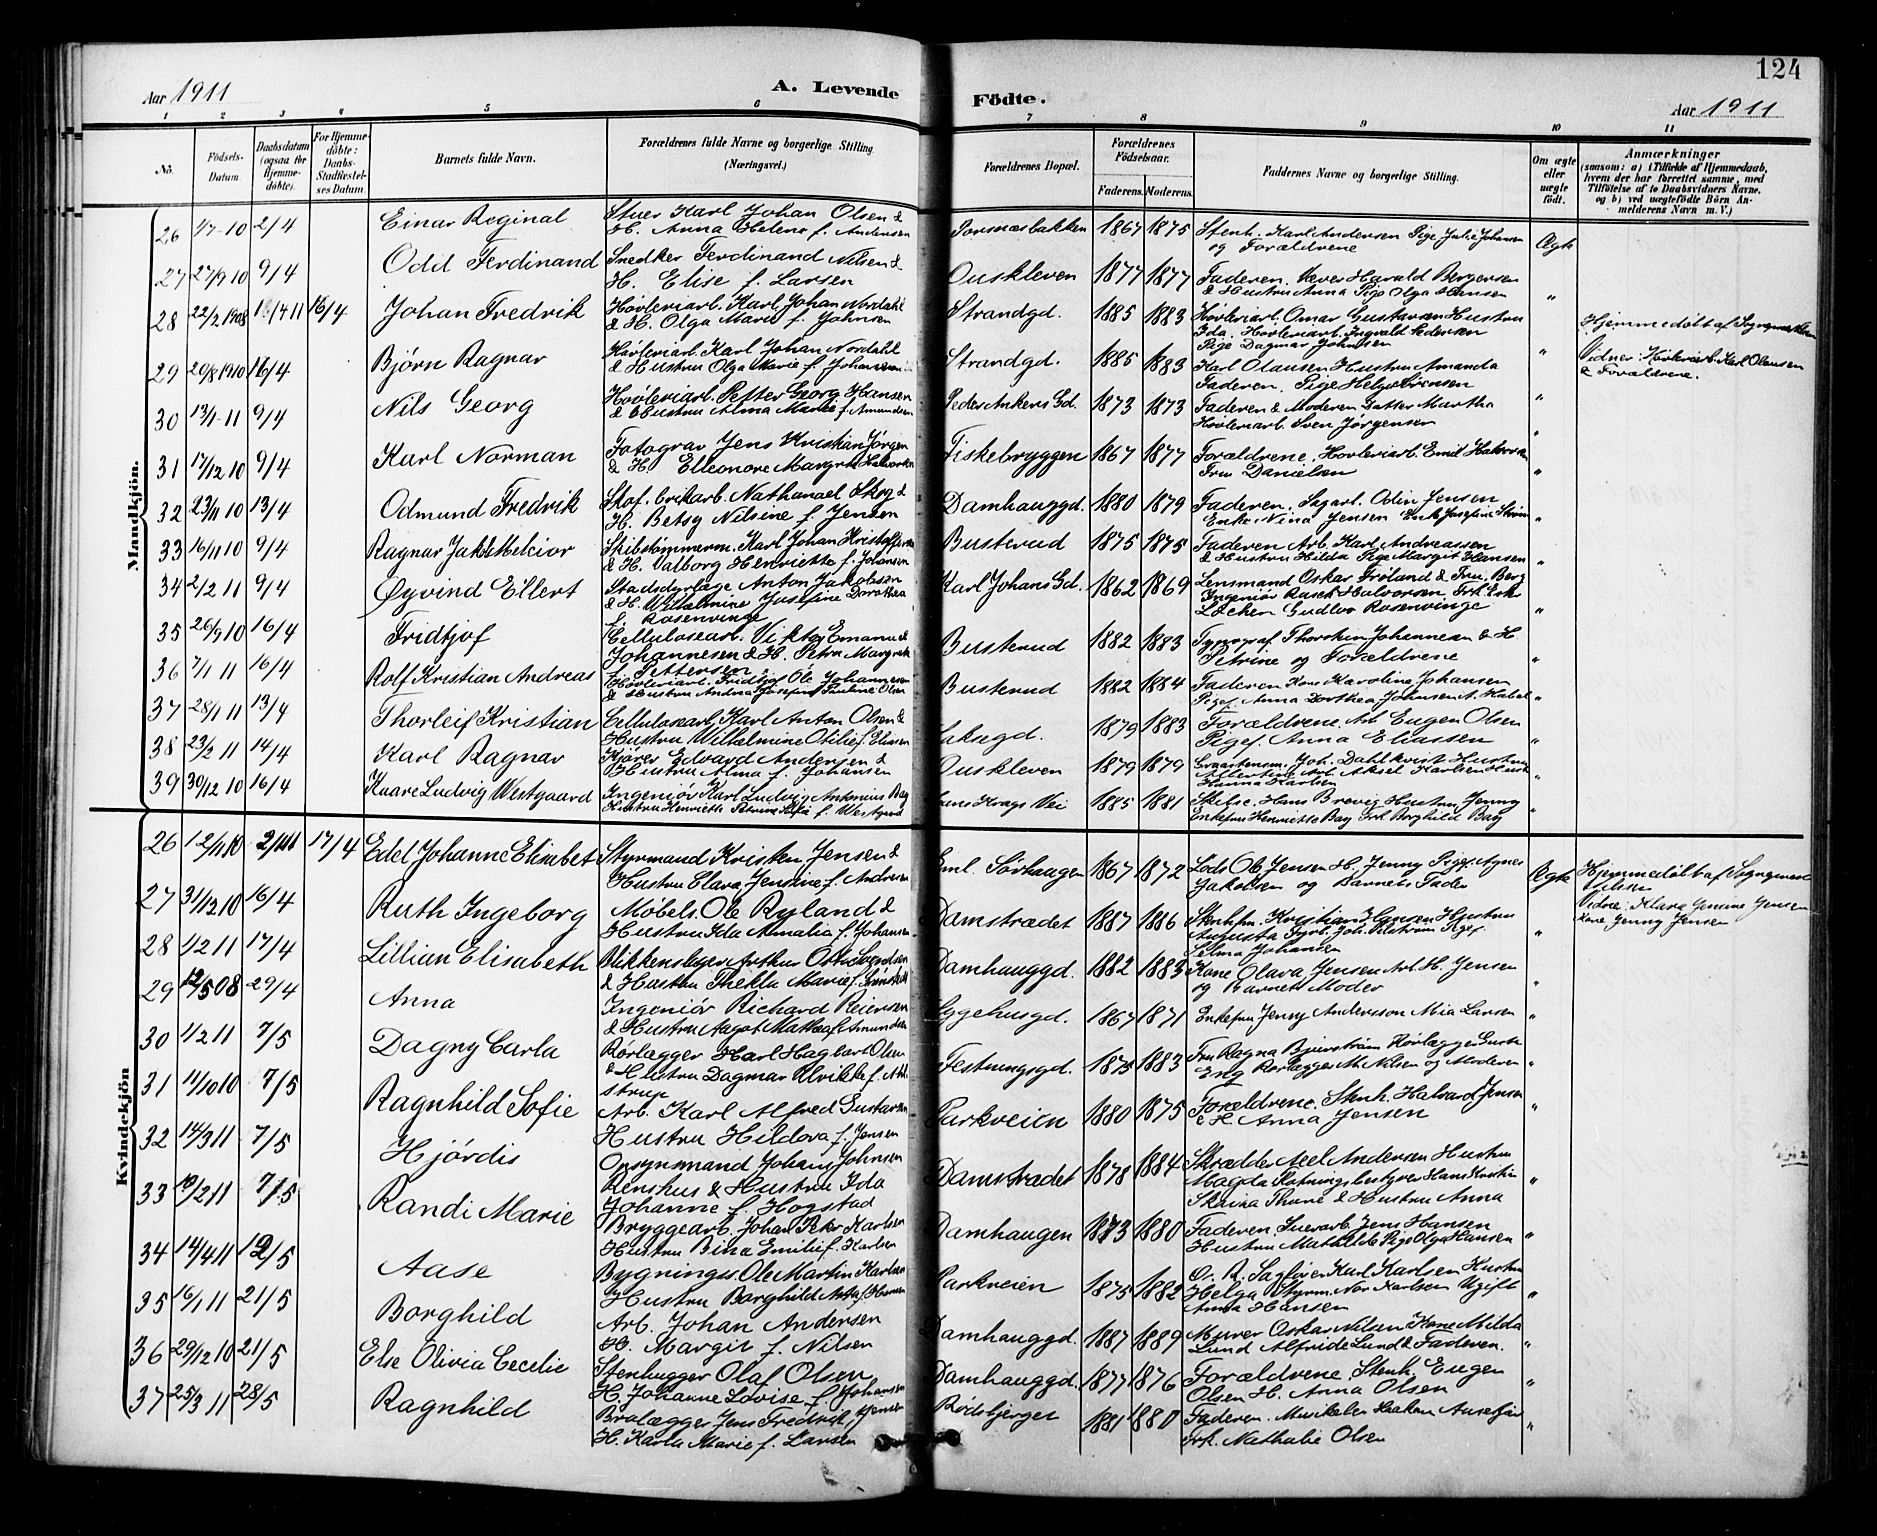 124
Aar 1911
A. Levende
Födte.
Aar 1911
1 2 3 4 5 6 7 8 9 10 11
No. Födsels-Datum. Daabsdatum (ogsaa for Hjemmedöbte). For Hjemmedöbte: Daabs-Stadfæstelses Datum. Barnets fulde Navn. Forældrenes fulde Navne og borgerlige Stilling (Næringsvei.) Forældrenes Bopæl. Forældrenes Födselsaar. Faderens. Moderens. Faddernes Navne og borgerlige Stilling. Om ægte eller uægte födt. Anmærkninger (saasom: a) i Tilfælde af Hjemmedaab, hvem der har forrettet samme, med Tilföielse af to Daabsvidners Navne, og b) ved uægtefödte Börn Anmelderens Navn m. V.)
Mandkjön.
26 4/7-10 2/4 Einar Reginal Stuer Karl Johan Olsen & H. Anna Helene f. Andersen 1867 1875 Stenh. Karl Andersen Pige Julie Johansen og Forældrene Ægte
27 27/9 10 9/4 Odd Ferdinand Snedker Ferdinand Nilsen & H. Elise f. Larsen Ouskleven 1877 1877 Faderen, Væver Harald Bergersen & Hustru Anna Pige Olga Hansen "
28 22/2 1908 16/4 Johan Fredrik Høvleriarb. Karl Johan Nordahl & H. Olga Marie f. Johnsen Strandgd. 1885 1883 Høvleriarb. Omar Gustavsen Hustru Ida, Høvleriarb. Ingvald Pedersen Pige Dagmar Johansen " Hjemmedøbt af
29 20/8 1910 16/4 Bjørn Ragnar Høvleriarb. Karl Johan Nordahl & Hustru Olga Marie f. Johansen Strandgd. 1885 1883 Karl Olausen Hustru Amanda Faderen, Pige Helga Sørensen " Vidner: Høvleriarb. Karl Olausen & Forældrene.
30 13/1-11 9/4 Nils Georg Høvleriarb. Petter Georg Hansen & Hustru Alma Marie f. Amundsen Peder Ankers Gd. 1873 1873 Faderen & Moderen Datter Martha Høvleriarb. Sven Jørgensen "
31 17/12 10 9/4 Karl Norman Fotograv Jens Kristian Jørgen & H. Elleonore Margrete Fiskebryggen 1867 1877 Forældrene, Hovleriarb. Emil Fru Danielsen "
32 23/11 10 13/4 Odmund Fredrik Stof. Nathanael Skog & H. Betsy Nilsine f. Jensen Damhauggd. 1880 1879 Faderen, Sagarb. Odin Jensen Enke Nina Jensen Enke Josefine "
33 16/11 10 9/4 Ragnar Jakob Melcior Skibstømmerm. Karl Johan & H. Valborg Henriette f. Johansen Busterud 1875 1875 Faderen Arb. Karl Andreassen & Hustru Hilda Pige Margit Hansen "
34 2/2 11 9/4 Øyvind Eilert Stadsdyrlæge Anton Jakobsen & H. Wilhelmine Josefine Dorothea f. Rosenvinge Karl Johans Gd. 1862 1869 Lensmand Oskar Frøland & Fru, Berg Ingeniør Rasch Halvorsen Frk. Løchen Gudlov Rosenvinge "
35 26/9 10 16/4 Fridtjof Cellulosearb. Viktor Emanuel Johannesen & H. Petra Margrete Pettersen Busterud 1882 1883 Typograf Thorstein Johannesen & H. Petrine og Forældrene "
36 7/1 11 16/4 Rolf Kristian Andreas Høvleriarb. Fridtjof Ole Johannesen & Hustru Anna Josefine Pauline Olsen Busterud 1882 1884 Faderen Kone Karoline Johansen Pigef. Anna Dorthea Johansen "
37 28/1 11 13/4 Thorleif Kristian Cellulosearb. Karl Anton Olsen & Hustru Wilhelmine Otilie f. Eliasen 1879 1883 Forældrene Arb. Eugen Olsen Pigef. Anna Eliassen "
38 23/2 11 14/4 Karl Ragnar Kjører Edvard Andersen & Hustru Alma f. Johansen Ouskleven 1879 1879 Joh. Dahlkvist Hustru Albertine Arb. Aksel Karlsen Hustru Hanna Karlsen "
39 30/12 10 16/4 Kaare Ludvig Westgaard Ingeniør Karl Ludvig Antonius Bay Hustru Henriette Petrine Sofie f. Westgaard Krags Vei 1885 1881 Hans Brevig Hustru Jenny Enkefru Henriette Bay Frk Borghild Bay "
Kvindekjön
26 12/11 10 17/4 Edel Johanne Elisabet Styrmand Kristen Jensen & Hustru Clara Jensine f. Andresen Eml. Sørhaugen 1867 1872 Lods Ob. Jensen H. Jenny Pigef. Agnes Jakobsen og Barnets Fader Ægte Hjemmedøbt af Vidne: Klara Jensine Jensen Kone Jenny Jensen
27 31/12 10 16/4 Ruth Ingeborg Møbels. Ole Ryland & Hustru Ida Amalia f. Johansen Damstrædet 1887 1886 Kristian Hansen Hustru Augusta Fyrb. Joh. Pigef. Selma Johansen "
28 1/2 11 17/4 Lillian Elisabeth Blikkenslager Arthur Svendsen & Hustru Thekla Marie f. Damhauggd. 1882 1883 Kone Olava Jensen Arb. H. Jensen og Barnets Moder "
29 12/5 08 29/4 Anna Ingeniør Richard Reiersen & Hustru Aagot Mathea f. Amundsen 1867 1871 Enkefru Jenny Andersson Mia Larsen "
30 1/2 11 7/5 Dagny Carla Rørlægger Karl Hagbart Olsen & Hustru Dagmar Ulvikke f. Ahlstrup Festningsgd. 1875 1883 Fru Ragna Rørlægger Eng Rørlægger M. Nilsen og Moderen "
31 11/10 10 7/5 Ragnhild Sofie Arb. Karl Alfred Gustavsen Hustru Hildora f. Jensen Parkveien 1880 1875 Forældrene. Stenh. Halvard Jensen & H. Anna Jensen "
32 14/3 11 7/5 Hjørdis Opsynsmand Johan Johnsen Renshus & Hustru Ida Johanne f. Hogstad Damstrædet 1878 1884 Skrædder Axel Andersen Hustru Magda & Hustru Anna "
33 10/2 11 7/5 Randi Marie Bryggearb. Johan Peter Karlsen Hustru Bina Emilie f. Karlsen Damhaugen 1873 1880 Faderen, Jens Hansen Hustru Mathilde Pige Olga Hansen "
34 14/4 11 12/5 Aase Bygnings. Ole Martin Karlsen Hustru Borghild Asta f. Hansen Parkveien 1875 1882 O. R. Sagfører Karl Karlsen Hustru Helga Styrm. Nor Karlsen Ugift Anna Hansen "
35 16/1 11 21/5 Borghild Arb. Johan Andersen H. Margit f. Nilsen Damhauggd. 1887 1889 Murer Oskar Nilsen Kone Milda Lund Alfride Lund & Faderen. "
36 29/12 10 21/5 Else Olivia Cecelie Stenhugger Olaf Olsen H. Johanne Lovise f. Johansen Damhauggd. 1877 1876 Forældrene Stenh. Eugen Olsen H. Anna Olsen "
37 25/3 11 28/5 Ragnhild Brolægger Jens Fredrik Jensen H. Karla Marie f. Larsen Rødsbjerget 1881 1880 Faderen. Musikeler Haakon Frk. Nathalie Olsen "